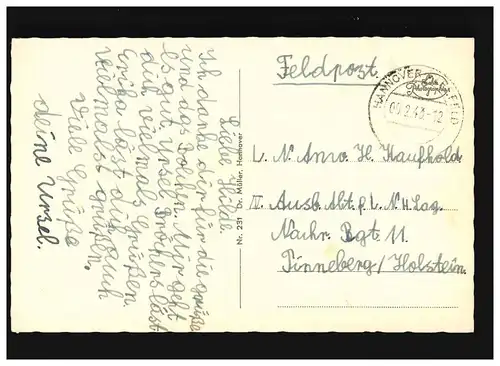 Liebe Hilde.
Ich danke dir für die Grüße
und das Folchen. Mir geht
es gut. Ursel läst
dich vielmals Grüßen.
Erika läst dich auch
vielmalst grüßen.
Viele Grüße
deine Ursel.
Nr. 231 Dr. Müller, Hannover
Feldpost
HANNOVER
09.2.43-12
L. N. Anw. H. Kaufhold
IV Ausb. Abt. f. L. N. H. Lag.
Nachr. Rgt 11
Pinneberg/Holstein.